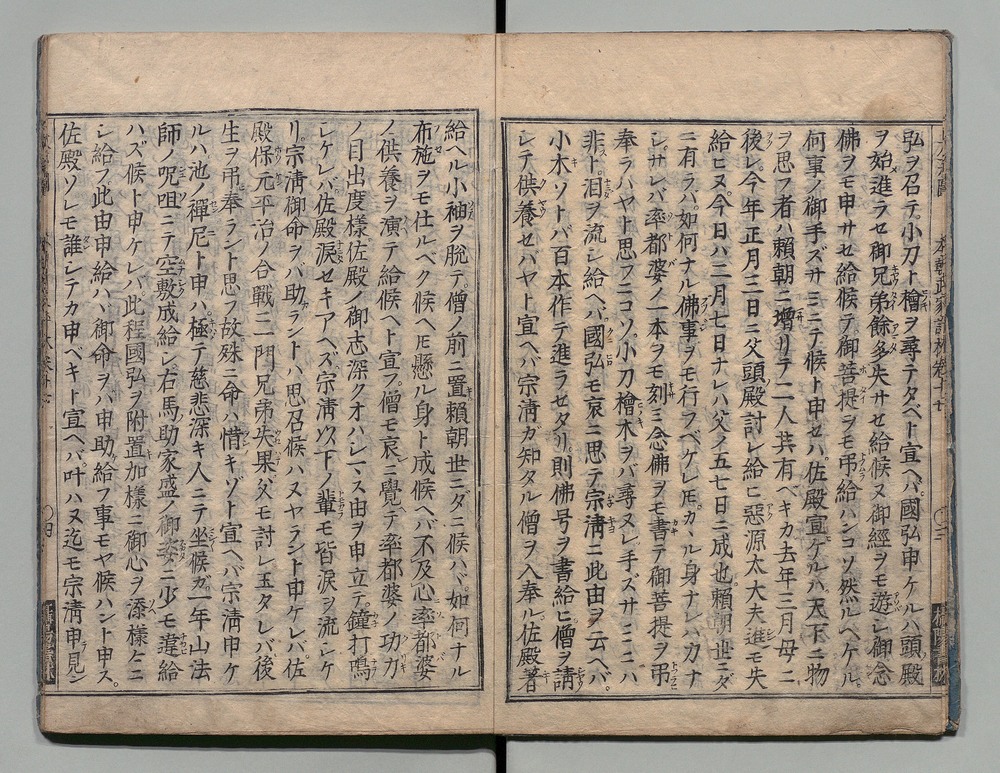 弘ヲ召テ。小刀ト檜ヲ尋テタベト宣ヘバ。國弘申ケルハ頭殿
ヲ始進ラセ御兄弟餘多失サセ給候ヌ御經ヲモ遊シ御念
佛ヲモ申サセ給候テ。御菩提ヲモ弔給ハンコソ然ルベケル。
何事ノ御手ズサミニテ候ト申セバ。佐殿宣ケルハ天下ニ物
ヲ思フ者ハ賴朝ニ增リテ二人共有ベキカ去年三月母ニ
後レ。今年正月三日ニ父頭殿討レ給ヒ惡源太大夫進モ失
給ヒヌ。今日ハ二月七日ナレハ父ノ五七日ニ成也。賴朝世ニダ
ニ有ラバ。如何ナル佛事ヲモ行ラベケレ𪜈。カヽル身ナレバカナ
シ。サレバ率都婆ノ一本ヲモ刻ミ念佛ヲモ書テ御菩提ヲ弔
奉ラハヤト思フニコソ。小刀檜木ヲバ尋ヌレ手ズサミニハ
非ト。泪ヲ流シ給ヘバ。國弘モ哀ニ思テ宗淸ニ此由ヲ云ヘバ。
小木ソトバ百本作テ進ラセタリ。則佛号ヲ書給ヒ僧ヲ請
シテ供養セバヤト宣ヘバ宗淸ガ知タル僧ヲ入奉ル佐殿著
給ヘル小袖ヲ脫テ。僧ノ前ニ置賴朝世ニダニ候ハヾ。如何ナル
布施ヲモ仕ルベク候ヘ𪜈懸ル身ト成候ヘバ不及心率都婆
ノ供養ヲ演テ給候ヘト宣フ。僧モ哀ニ覺テ率都婆ノ功カ
ノ目出度樣佐殿ノ御志深クオハシマス由ヲ申立テ。鐘打鳴
シケレバ佐殿淚セキアヘズ宗淸以下ノ輩モ皆淚ヲ流シケ
リ。宗淸御命ヲバ助ラントハ思召候ハヌヤラント申ケレバ。佐
殿保元平治ノ合戰ニ一門兄弟失果。父モ討レ玉タレバ後
生ヲ弔奉ラント思フ故。殊ニ命ハ惜キゾト宣ヘバ宗淸申ケ
ルハ池ノ禪尼ト申ハ。極テ慈悲深キ人ニテ坐候ガ。一年山法
師ノ呪咀ニテ空敷成給シ右馬助家盛ノ御姿ニ少モ違給
ハズ候ト申ケレバ此程國弘ヲ附置加樣ニ御心ヲ添樣ケニ
シ給フ此由申給ハヽ御命ヲバ申助給フ事モヤ候ハント申ス。
佐殿ソレモ誰シテカ申ベキト宣ヘバ叶ハヌ迄モ宗淸申見シ